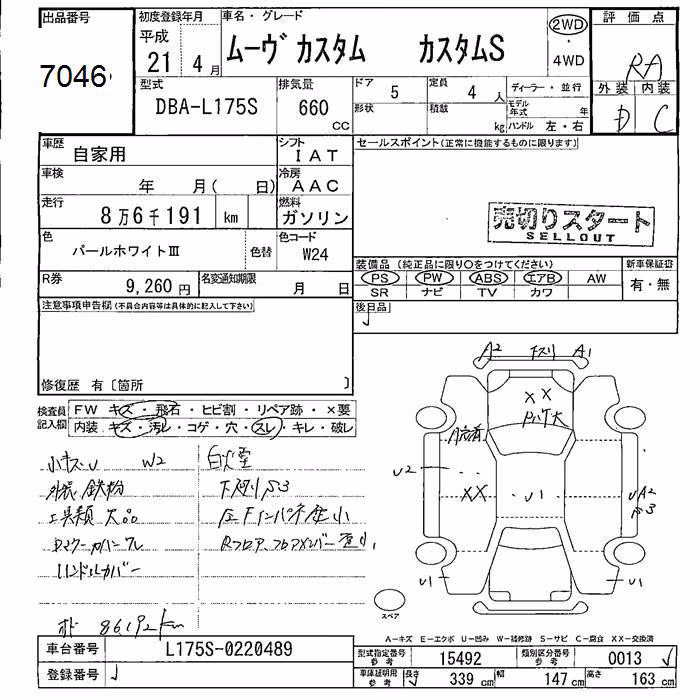 出品番号
7046
初度登録年月
平成
21 年 4 月
車名・グレード
ムーヴ カスタム カスタムS
2WD
・
4WD
評価点
RA
外装 内装
D C
型式
DBA-L175S
排気量
660
CC
ドア 5
定員 4 人
ディーラー・並行
形状
積載 kg
モデル年式 年
ハンドル 左・右
車歴
自家用
シフト
IAT
セールスポイント(正常に機能するものに限ります)
車検
年 月( 日)
冷房
AAC
走行
8万6千191 km
燃料
ガソリン
売切りスタート
SELLOUT
色
パールホワイトⅢ
色替
色コード
W24
R券
9,260 円
名変通知期限
月 日
装備品 (純正品に限り○をつけてください)
新車保証書
PS PW ABS エアB AW
有・無
SR ナビ TV カワ
注意事項申告欄(不具合内容等は具体的に記入して下さい)
後日品
修復歴 有〔箇所 〕
検査員
記入欄
FW キズ・飛石・ヒビ割・リペア跡・×要
内装 キズ・汚レ・コゲ・穴・スレ・キレ・破レ
小キズU W2
外装 鉄粉
工具類 欠品
ハンドルカバー
下廻りS3
86192km
A2 下スリ A1
XX
U2
XX
U1
UA2
U1
U1
スペア
A-キズ E-エクボ U-凹み W-補修跡 S-サビ C-腐食 XX-交換済
車台番号
L175S-0220489
登録番号
型式指定番号
参考
15492
類別区分番号
参考
0013
車庫証明用
参考
長さ 339 cm
幅 147 cm
高さ 163 cm